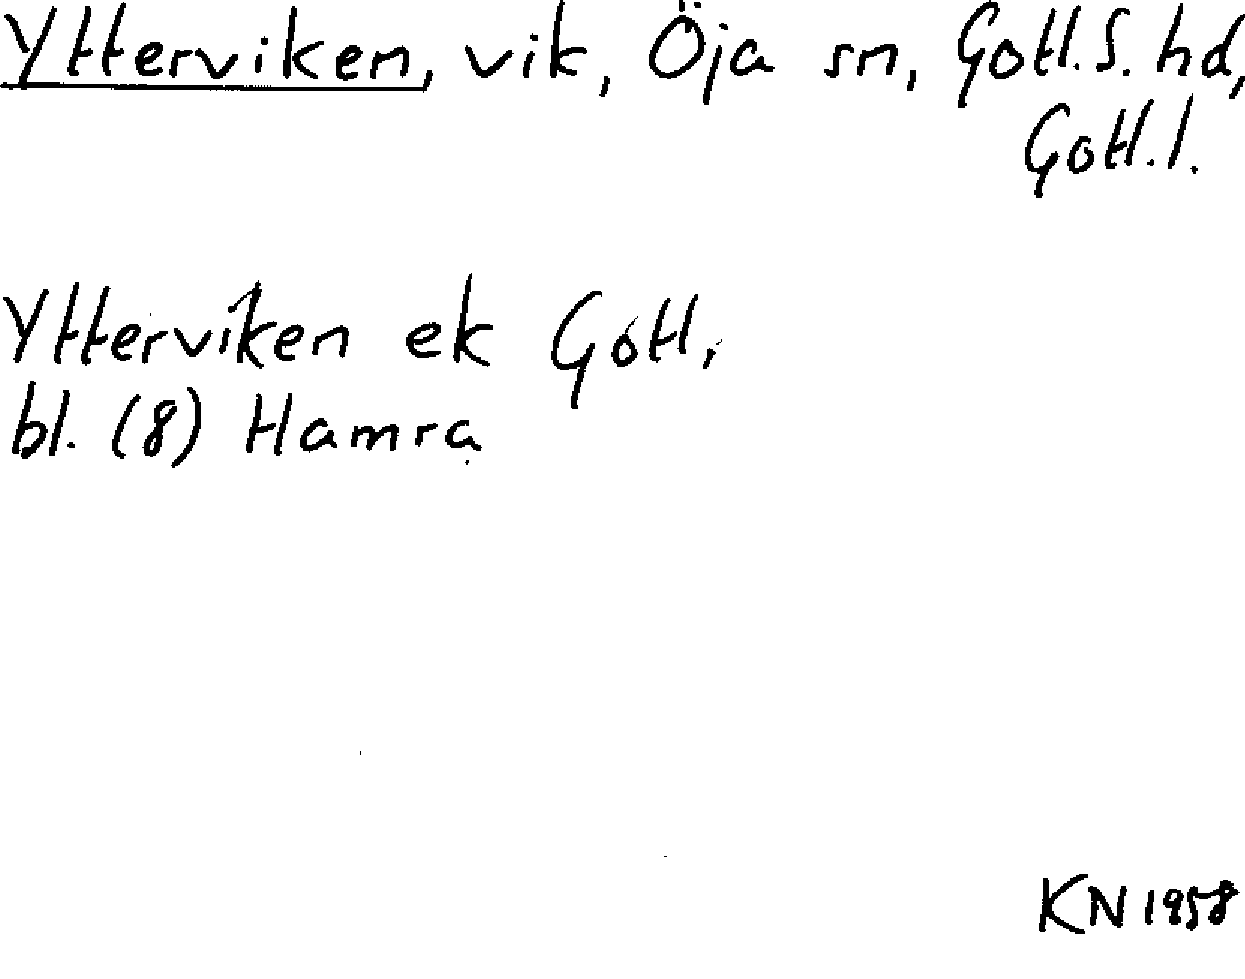 Ytterviken, vik, Öja sn, Gotl. S. hd,
Gotl. l.
Ytterviken ek Gotl,
bl. (8) Hamra
KN 1958